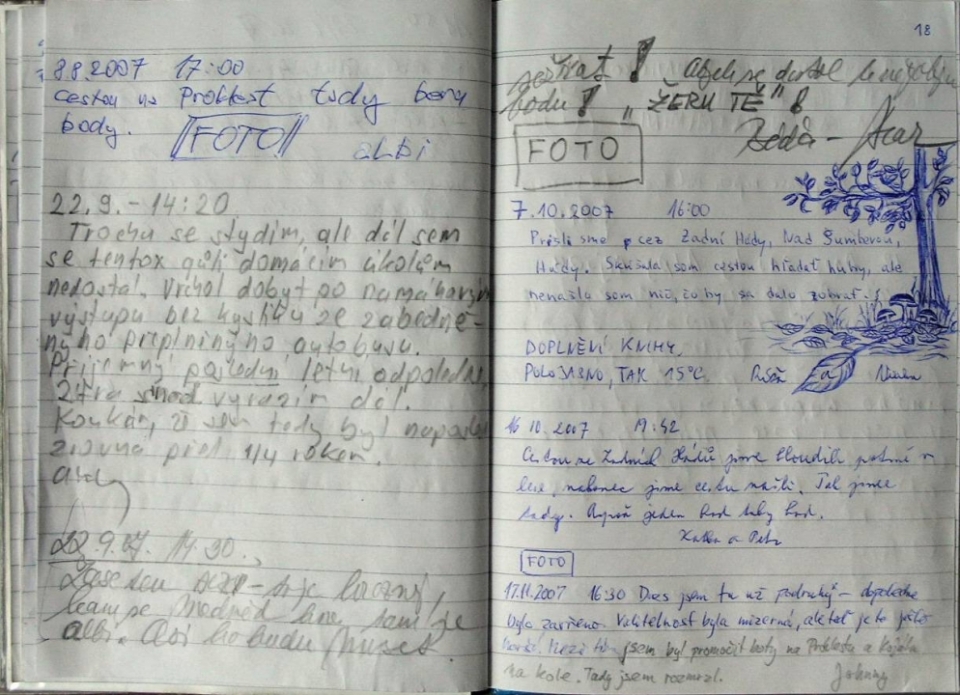 8.8.2007 17:00
cestou na Proklest tudy beru
body. FOTO albi
22.9. - 14:20
Trochu se stydim, ale dál sem
se tentox kůli domácim úkolům
nedostal. Vrchol dobyt po namáhavým
výstupu bez kyslíku ze zabedně-
nýho přeplnìnýho autobusu.
Příjemný poslední letní odpoledne,
zítra snad vyrazim dál.
Koukám, že sem tady byl naposled
zrovna před 1/4 rokem.
22.9.07. 14:30.
Zase ten
albi. Asi ho budu muset
18
počkat! Abych se dostal
bodu! "ŽERU TĚ"!
FOTO
7.10.2007 16:00
Prišli sme cez Zadní Hády, Nad Šumberou,
Hády. Skúšala som cestou hľadať huby, ale
nenašla som nič, čo by sa dalo zobrať.
DOPLNĚNÍ KNIHY.
POLOJASNO, TAK 15°C
a
16 10. 2007 19:42
Cestou ze Zadních Hádů jsme bloudili potmě v
lese, nakonec jsme cestu našli. Tak jsme
tady. Aspoň jeden bod taky bod.
a Petr
FOTO
17.11.2007 16:30 Dnes jsem tu už podruhý - dopoledne
bylo zavřeno. Viditelnost byla mizerná, ale teď je to ještě
horší. Mezi tím jsem byl promočit boty na Proklestu a
na kole. Tady jsem rozmrzl. Johnny